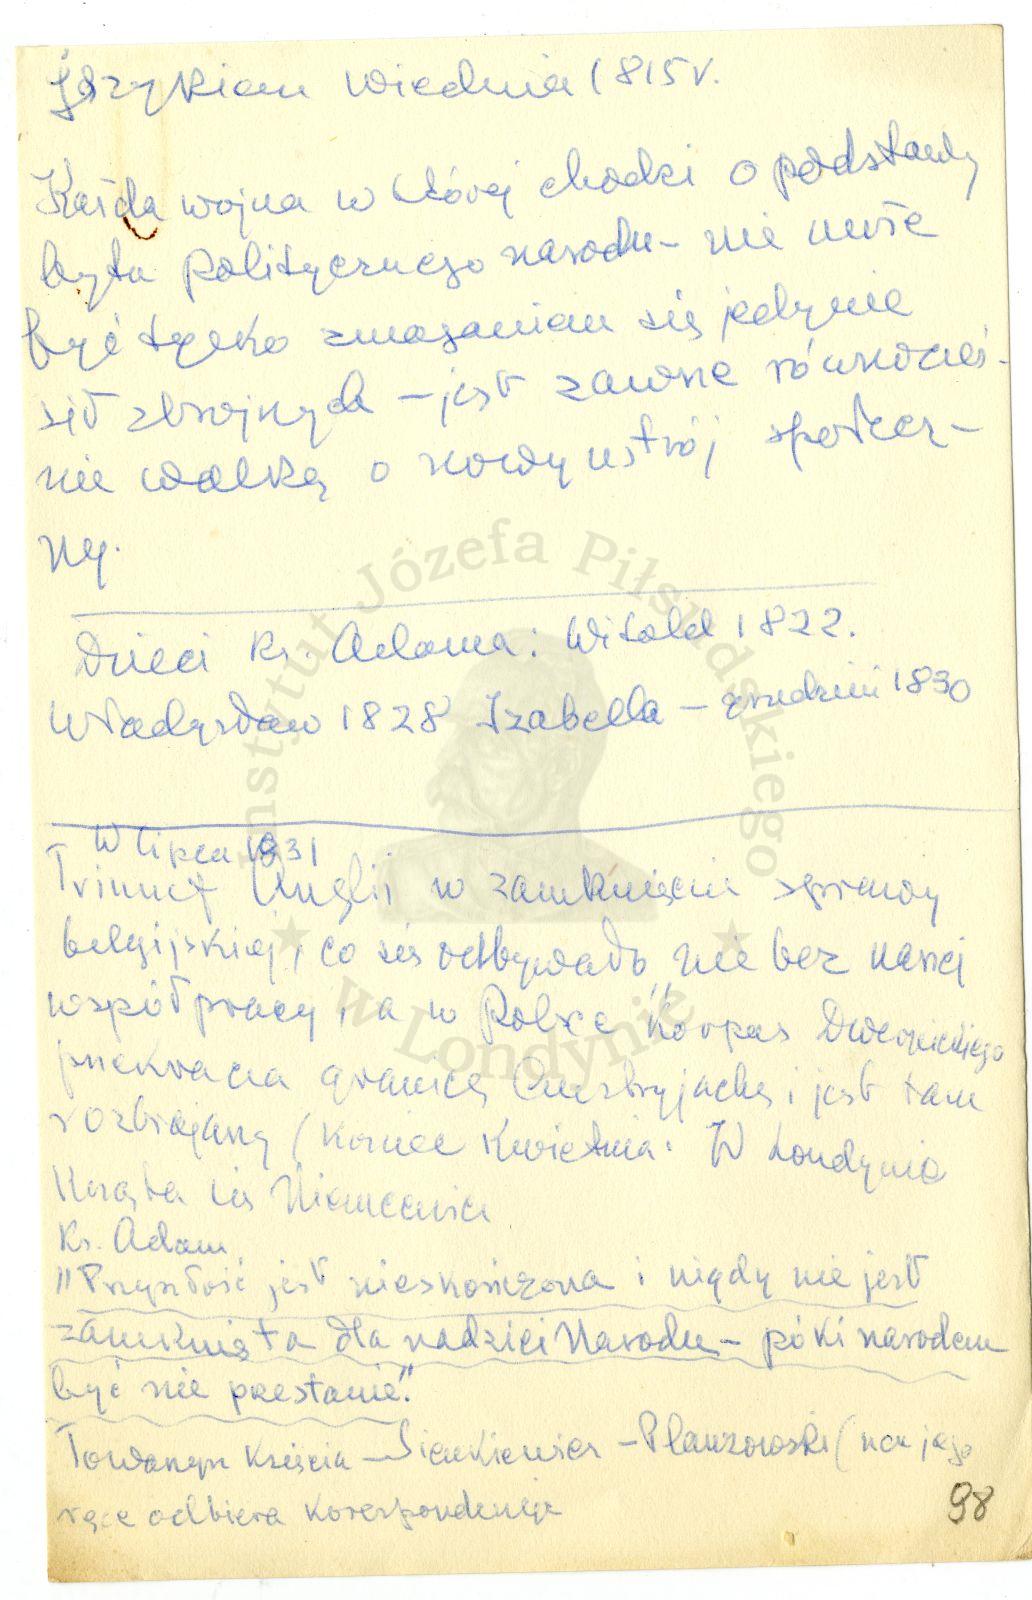 językiem Wiednia 1815 r.
Każda wojna w której chodzi o podstawy
bytu politycznego narodu – nie może
być tylko zmaganiem się jedynie
sił zbrojnych – jest zawsze równocześ-
nie walką o nowy ustrój społecz-
ny.
Dzieci ks. Adama: Witold 1822.
Władysław 1828 Izabella – grudzień 1830
W lipcu 1831
Triumf Anglii w zamknięciu sprawy
belgijskiej, co się odbywało nie bez naszej
współpracy, a w Polsce korpus Dwernickiego
przekracza granicę Austryjacką i jest tam
rozbrajany (koniec kwietnia. W Londynie
krząta się Niemcewicz
Ks. Adam
"Przyszłość jest nieskończona i nigdy nie jest
zamknięta dla nadziei Narodu – póki narodem
być nie przestanie."
Towarzysz Księcia – Sienkiewicz – (na jego
ręce odbiera korespondencję
98
Instytut Józefa Piłsudskiego
w Londynie